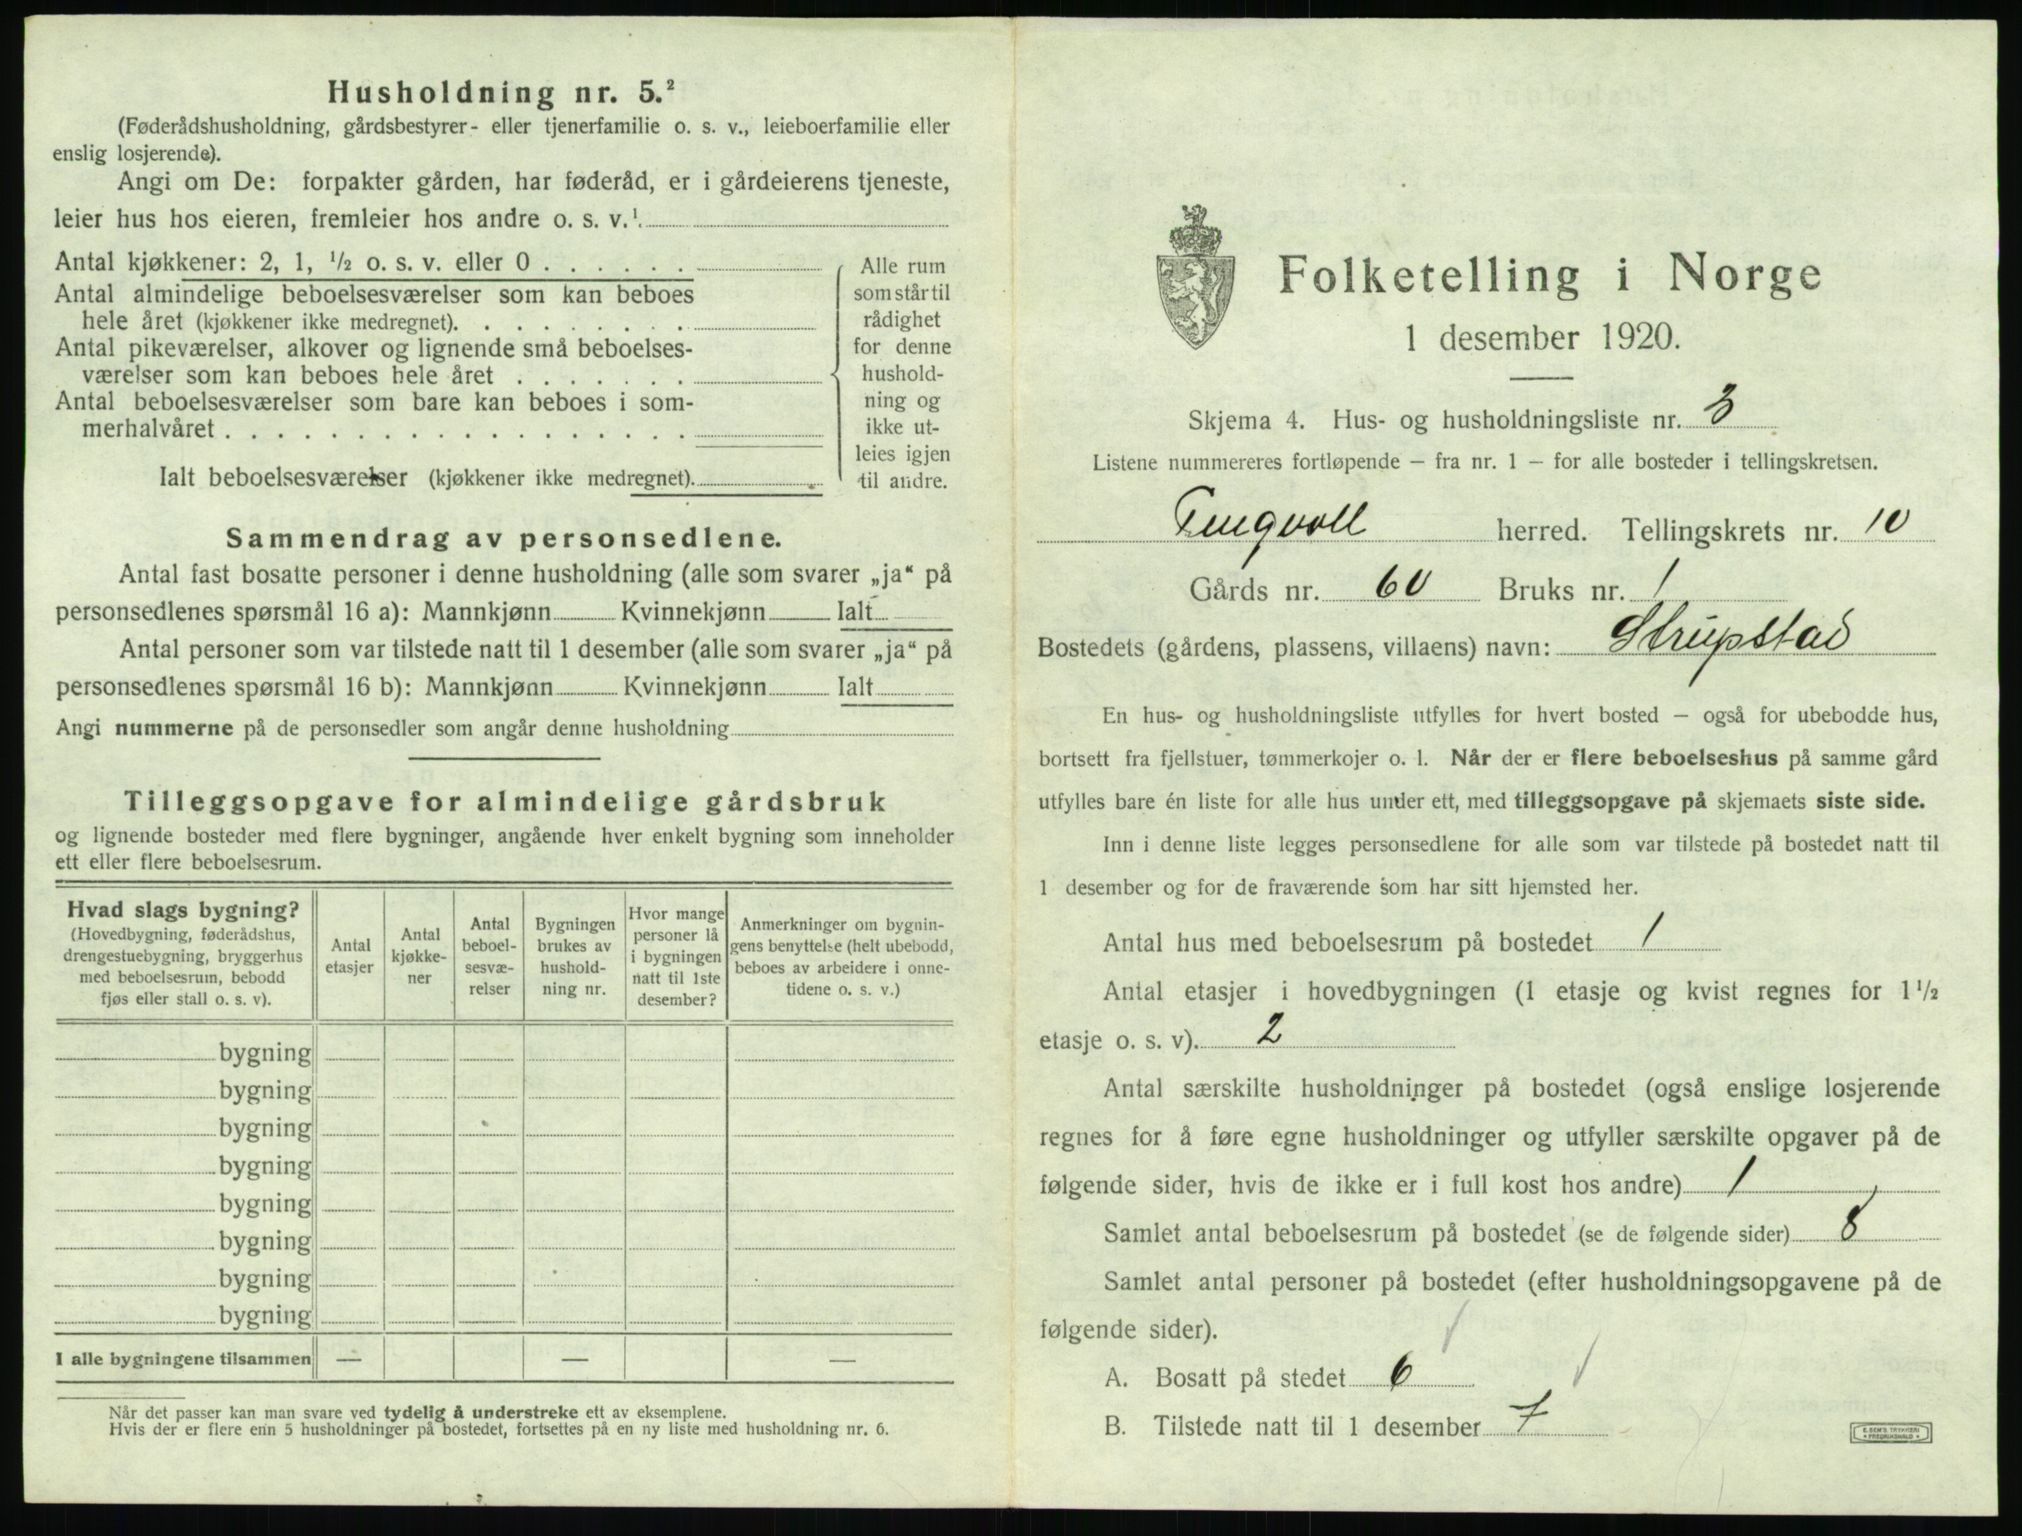 Husholdning nr. 5.²
(Føderådshusholdning, gårdsbestyrer- eller tjenerfamilie o. s. v., leieboerfamilie eller
enslig losjerende).
Angi om De: forpakter gården, har føderåd, er i gårdeierens tjeneste,
leier hus hos eieren, fremleier hos andre o. s. v.¹.
Antal kjøkkener: 2, 1, ½ o. s. v. eller 0 . . . . . .
Antal almindelige beboelsesværelser som kan beboes
hele året (kjøkkener ikke medregnet). . . . . . . . .
Antal pikeværelser, alkover og lignende små beboelses-
værelser som kan beboes hele året . . . . . . .
Antal beboelsesværelser som bare kan beboes i som-
merhalvåret . . . . . . . . . . . . . . . . . .
Ialt beboelsesværelser (kjøkkener ikke medregnet).
Alle rum
som står til
rådighet
for denne
hushold-
ning og
ikke ut-
leies igjen
til andre.
Sammendrag av personsedlene.
Antal fast bosatte personer i denne husholdning (alle som svarer „ja“ på
personsedlenes spørsmål 16 a): Mannkjønn Kvinnekjønn Ialt
Antal personer som var tilstede natt til 1 desember (alle som svarer „ja“ på
personsedlenes spørsmål 16 b): Mannkjønn Kvinnekjønn Ialt
Angi nummerne på de personsedler som angår denne husholdning
Tilleggsopgave for almindelige gårdsbruk
og lignende bosteder med flere bygninger, angående hver enkelt bygning som inneholder
ett eller flere beboelsesrum.
Hvad slags bygning?
(Hovedbygning, føderådshus,
drengestuebygning, bryggerhus
med beboelsesrum, bebodd
fjøs eller stall o. s. v).
Antal
etasjer
Antal
kjøkke-
ner
Antal
beboel-
sesvæ-
relser
Bygningen
brukes av
hushold-
ning nr.
Hvor mange
personer lå
i bygningen
natt til 1ste
desember?
Anmerkninger om bygnin-
gens benyttelse (helt ubebodd,
beboes av arbeidere i onne-
tidene o. s. v.)
bygning
bygning
bygning
bygning
bygning
bygning
bygning
bygning
I alle bygningene tilsammen — — —
Når det passer kan man svare ved tydelig å understreke ett av eksemplene.
Hvis der er flere enn 5 husholdninger på bostedet, fortsettes på en ny liste med husholdning nr. 6.
Folketelling i Norge
1 desember 1920.
Skjema 4. Hus- og husholdningsliste nr. 3
Listene nummereres fortløpende – fra nr. 1 – for alle bosteder i tellingskretsen.
Tingvoll herred. Tellingskrets nr. 10
Gårds nr. 60 Bruks nr. 1
Bostedets (gårdens, plassens, villaens) navn: Strupstad
En hus- og husholdningsliste utfylles for hvert bosted – også for ubebodde hus,
bortsett fra fjellstuer, tømmerkojer o. l. Når der er flere beboelseshus på samme gård
utfylles bare én liste for alle hus under ett, med tilleggsopgave på skjemaets siste side.
Inn i denne liste legges personsedlene for alle som var tilstede på bostedet natt til
1 desember og for de fraværende som har sitt hjemsted her.
Antal hus med beboelsesrum på bostedet 1
Antal etasjer i hovedbygningen (1 etasje og kvist regnes for 1½
etasje o. s. v). 2
Antal særskilte husholdninger på bostedet (også enslige losjerende
regnes for å føre egne husholdninger og utfyller særskilte opgaver på de
følgende sider, hvis de ikke er i full kost hos andre) 1
Samlet antal beboelsesrum på bostedet (se de følgende sider) 8
Samlet antal personer på bostedet (efter husholdningsopgavene på de
følgende sider).
A. Bosatt på stedet 6
B. Tilstede natt til 1 desember 7
E. SEM'S TRYKKERI
FREDRIKSHALD